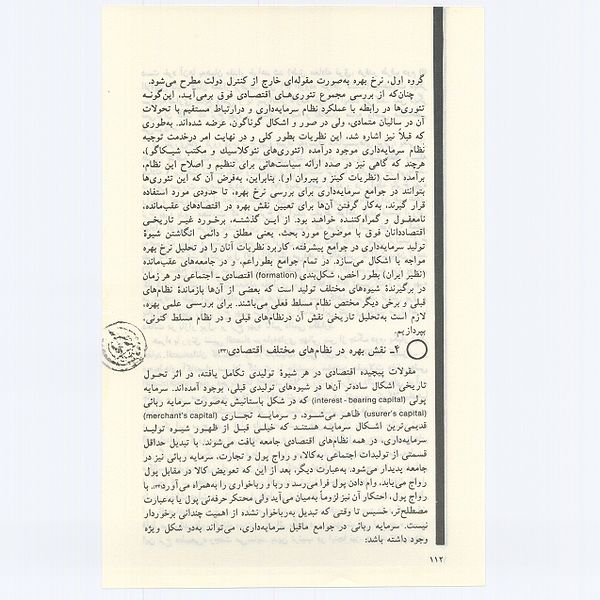 گروه اول، نرخ بهره به‌صورت مقوله‌ای خارج از کنترل دولت مطرح می‌شود.
چنان‌که از بررسی مجموع تئوری‌های اقتصادی فوق برمی‌آید، این‌گونه
تئوری‌ها در رابطه با عملکرد نظام سرمایه‌داری و درارتباط مستقیم با تحولات
آن در سالیان متمادی، ولی در صور و اشکال گوناگون، عرضه شده‌اند. به‌طوری
که قبلاً نیز اشاره شد، این نظریات بطور کلی و در نهایت امر درخدمت توجیه
نظام سرمایه‌داری موجود درآمده (تئوری‌های نئوکلاسیك و مکتب شیکاگو)،
هرچند که گاهی نیز در صدد ارائه سیاست‌هائی برای تنظیم و اصلاح این نظام،
برآمده است (نظریات کینز و پیروان او). بنابراین، به‌فرض آن که این تئوری‌ها
بتوانند در جوامع سرمایه‌داری برای بررسی نرخ بهره، تا حدودی مورد استفاده
قرار گیرند، به‌کار گرفتن آن‌ها برای تعیین نقش بهره در اقتصادهای عقب‌مانده،
نامعقول و گمراه‌کننده خواهد بود. از این گذشته، برخورد غیر تاریخی
اقتصاددانان فوق با موضوع مورد بحث، یعنی مطلق و دائمی انگاشتن شیوهٔ
تولید سرمایه‌داری در جوامع پیشرفته، کاربرد نظریات آنان را در تحلیل نرخ بهره
مواجه با اشکال می‌سازد. در تمام جوامع بطوراعم، و در جامعه‌های عقب‌مانده
(نظیر ایران) بطور اخص، شکل‌بندی (formation) اقتصادی ـ اجتماعی در هر زمان
در برگیرندهٔ شیوه‌های مختلف تولید است که بعضی از آن‌ها بازماندهٔ نظام‌های
قبلی و برخی دیگر مختص نظام مسلط فعلی می‌باشند. برای بررسی علمی بهره،
لازم است به‌تحلیل تاریخی نقش آن درنظام‌های قبلی و در نظام مسلط کنونی،
بپردازیم.
۴ـ نقش بهره در نظام‌های مختلف اقتصادی(۳۳)
مقولات پیچیده اقتصادی در هر شیوهٔ تولیدی تکامل یافته، در اثر تحول
تاریخی اشکال ساده‌تر آن‌ها در شیوه‌های تولیدی قبلی، بوجود آمده‌اند. سرمایه
پولی (interest - bearing capital) که در شکل باستانیش به‌صورت سرمایه ربائی
(usurer's capital) ظاهر می‌شود، و سرمایه تجاری (merchant's capital)
قدیمی‌ترین اشکال سرمایه هستند که خیلی قبل از ظهور شیوه تولید
سرمایه‌داری، در همه نظام‌های اقتصادی جامعه یافت می‌شوند. با تبدیل حداقل
قسمتی از تولیدات اجتماعی به‌کالا، و رواج پول و تجارت، سرمایه ربائی نیز در
جامعه پدیدار می‌شود. به‌عبارت دیگر، بعد از این که تعویض کالا در مقابل پول
رواج می‌یابد، وام دادن پول فرا می‌رسد و ربا و رباخواری را به‌همراه می‌آورد. با
رواج پول، احتکار آن نیز لزوماً به‌میان می‌آید ولی محتکر حرفه‌ئی پول یا به‌عبارت
مصطلح‌تر، خسیس تا وقتی که تبدیل به‌رباخوار نشده از اهمیت چندانی برخوردار
نیست. سرمایه ربائی در جوامع ماقبل سرمایه‌داری، می‌تواند به‌دو شکل ویژه
وجود داشته باشد:
۱۱۲